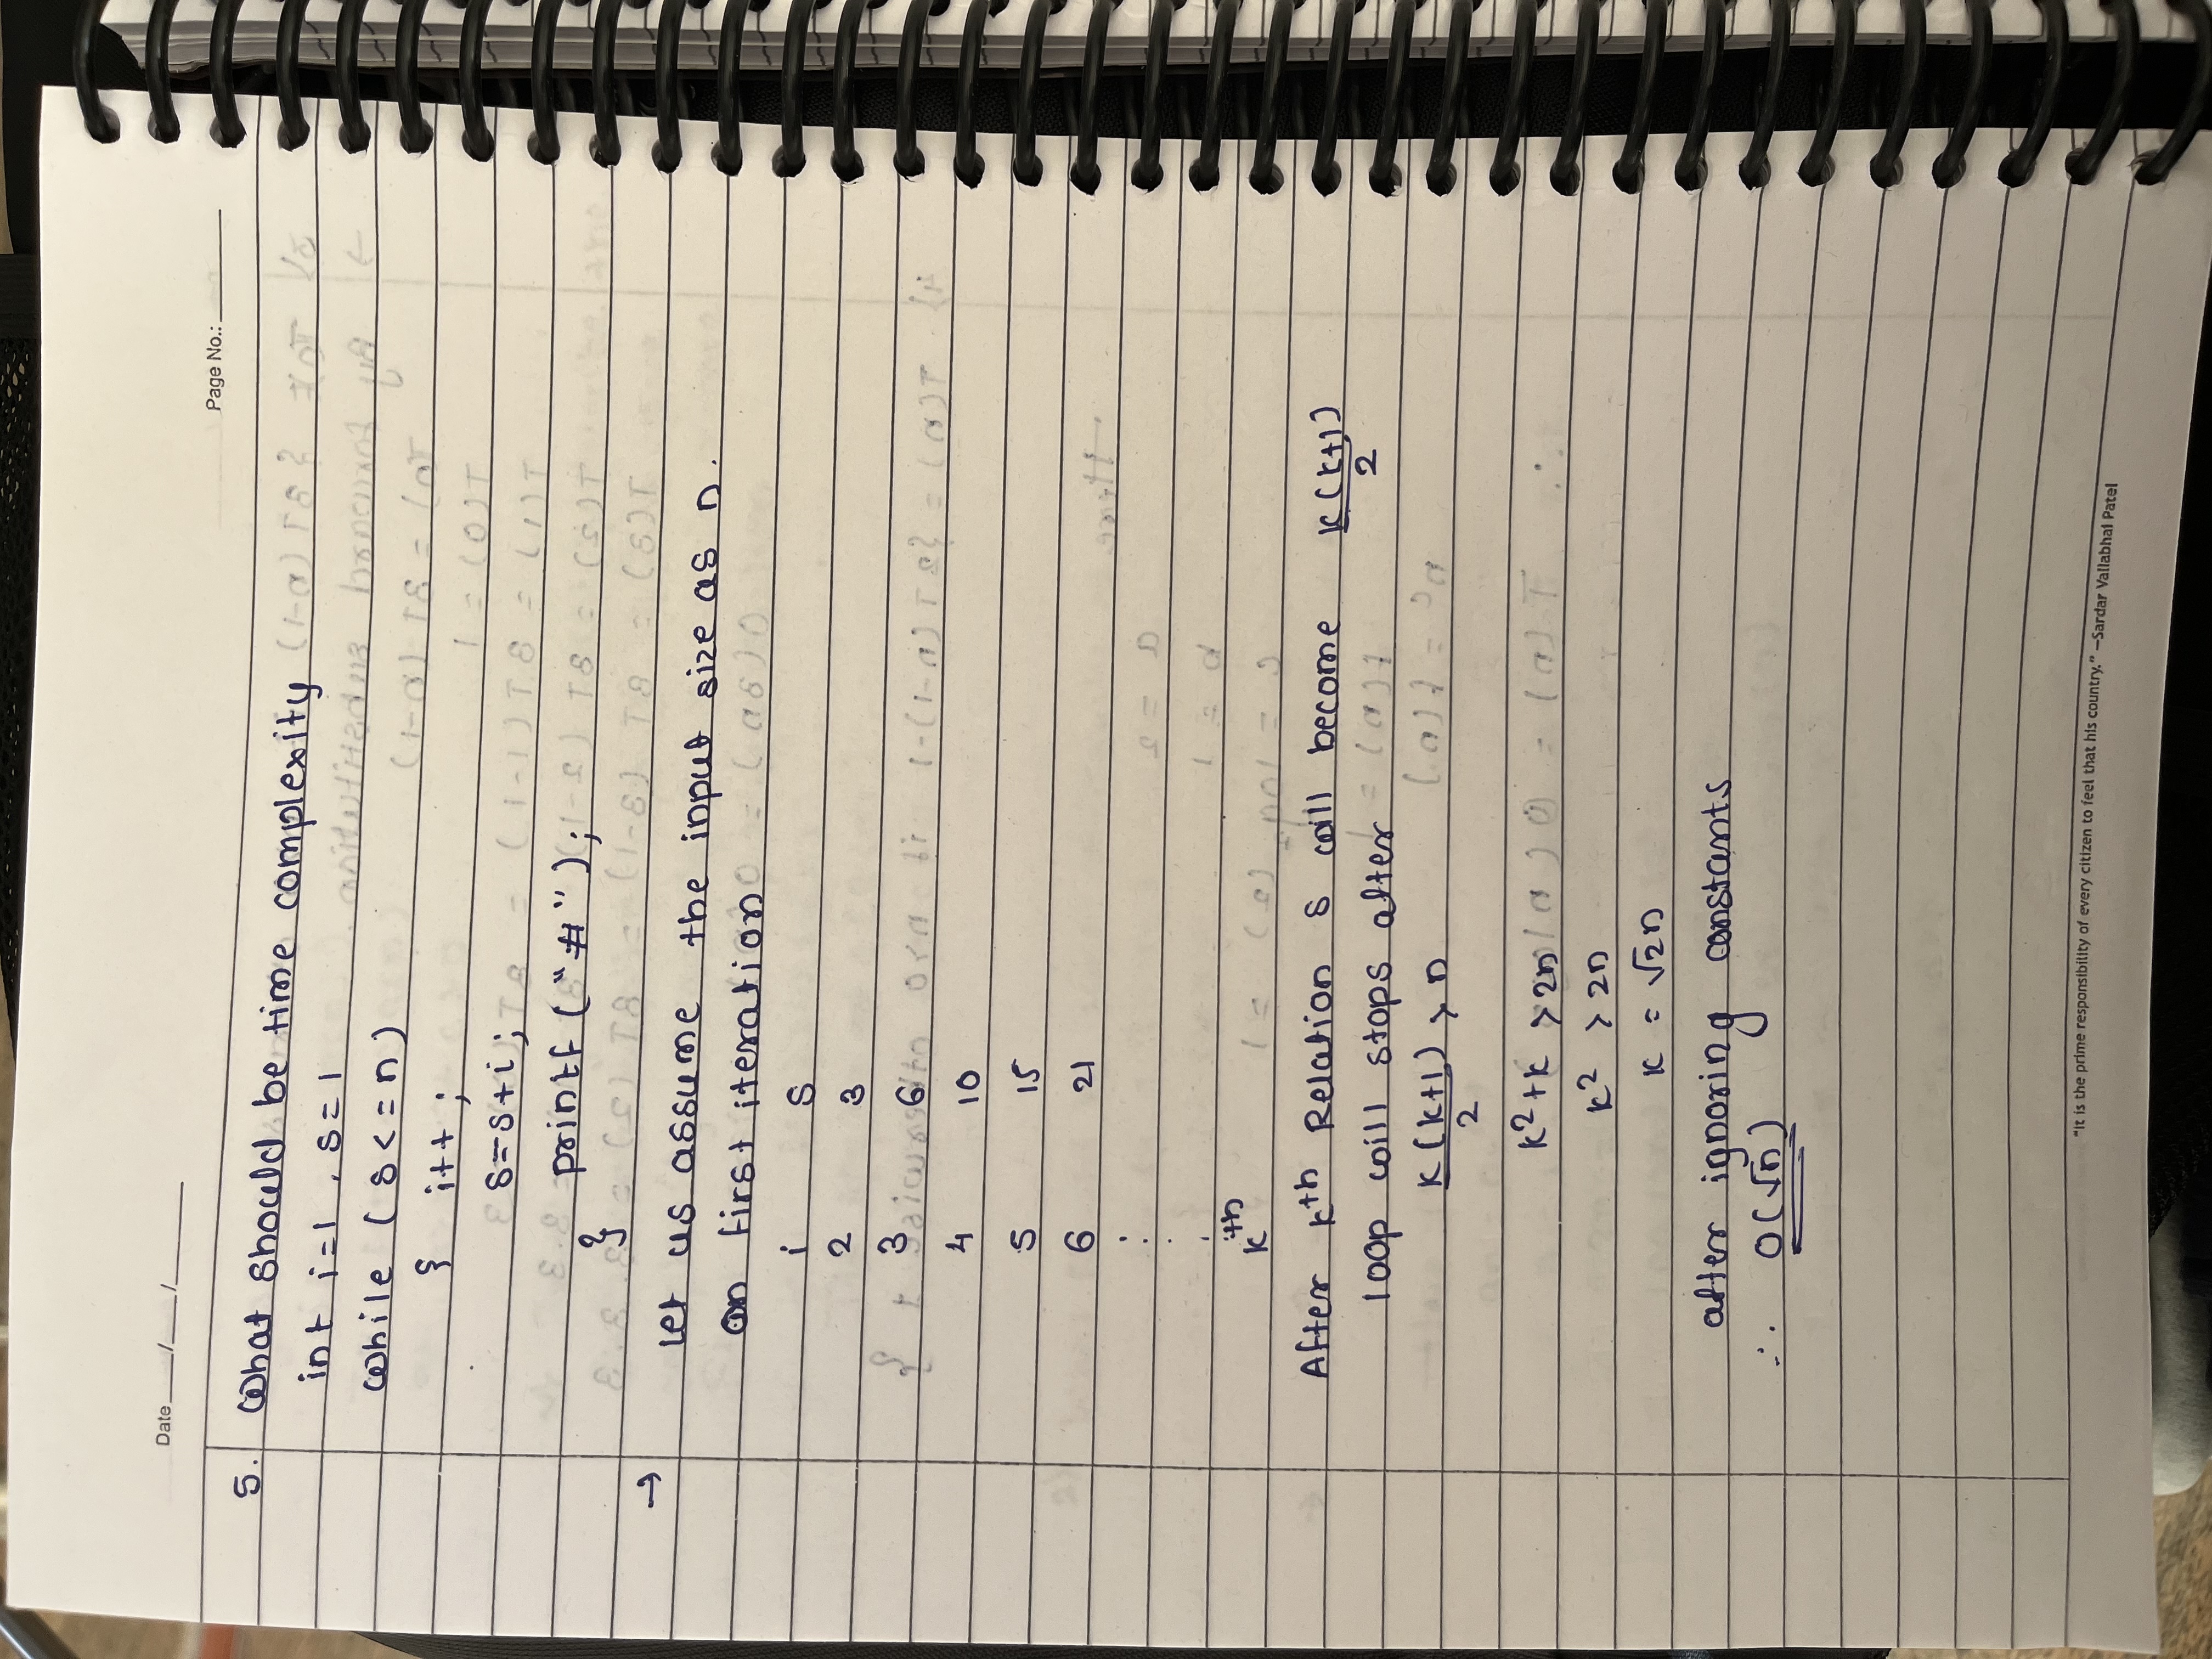 Date ___/___/______
Page No.: ________
5. What should be time complexity
int i=1 , s=1
while ( s<=n)
{ i++ ;
s=s+i ;
printf ( "#" ) ;
}
→
Let us assume the input size as n.
on first iteration
i s
2 3
3 6
4 10
5 15
6 21
:
:
kth
After kth Relation s will become k(k+1)/2
loop will stops after
k(k+1)/2 > n
k²+k > 2n
k² > 2n
k = √2n
after ignoring constants
∴ O(√n)
"It is the prime responsibility of every citizen to feel that his country." —Sardar Vallabhai Patel